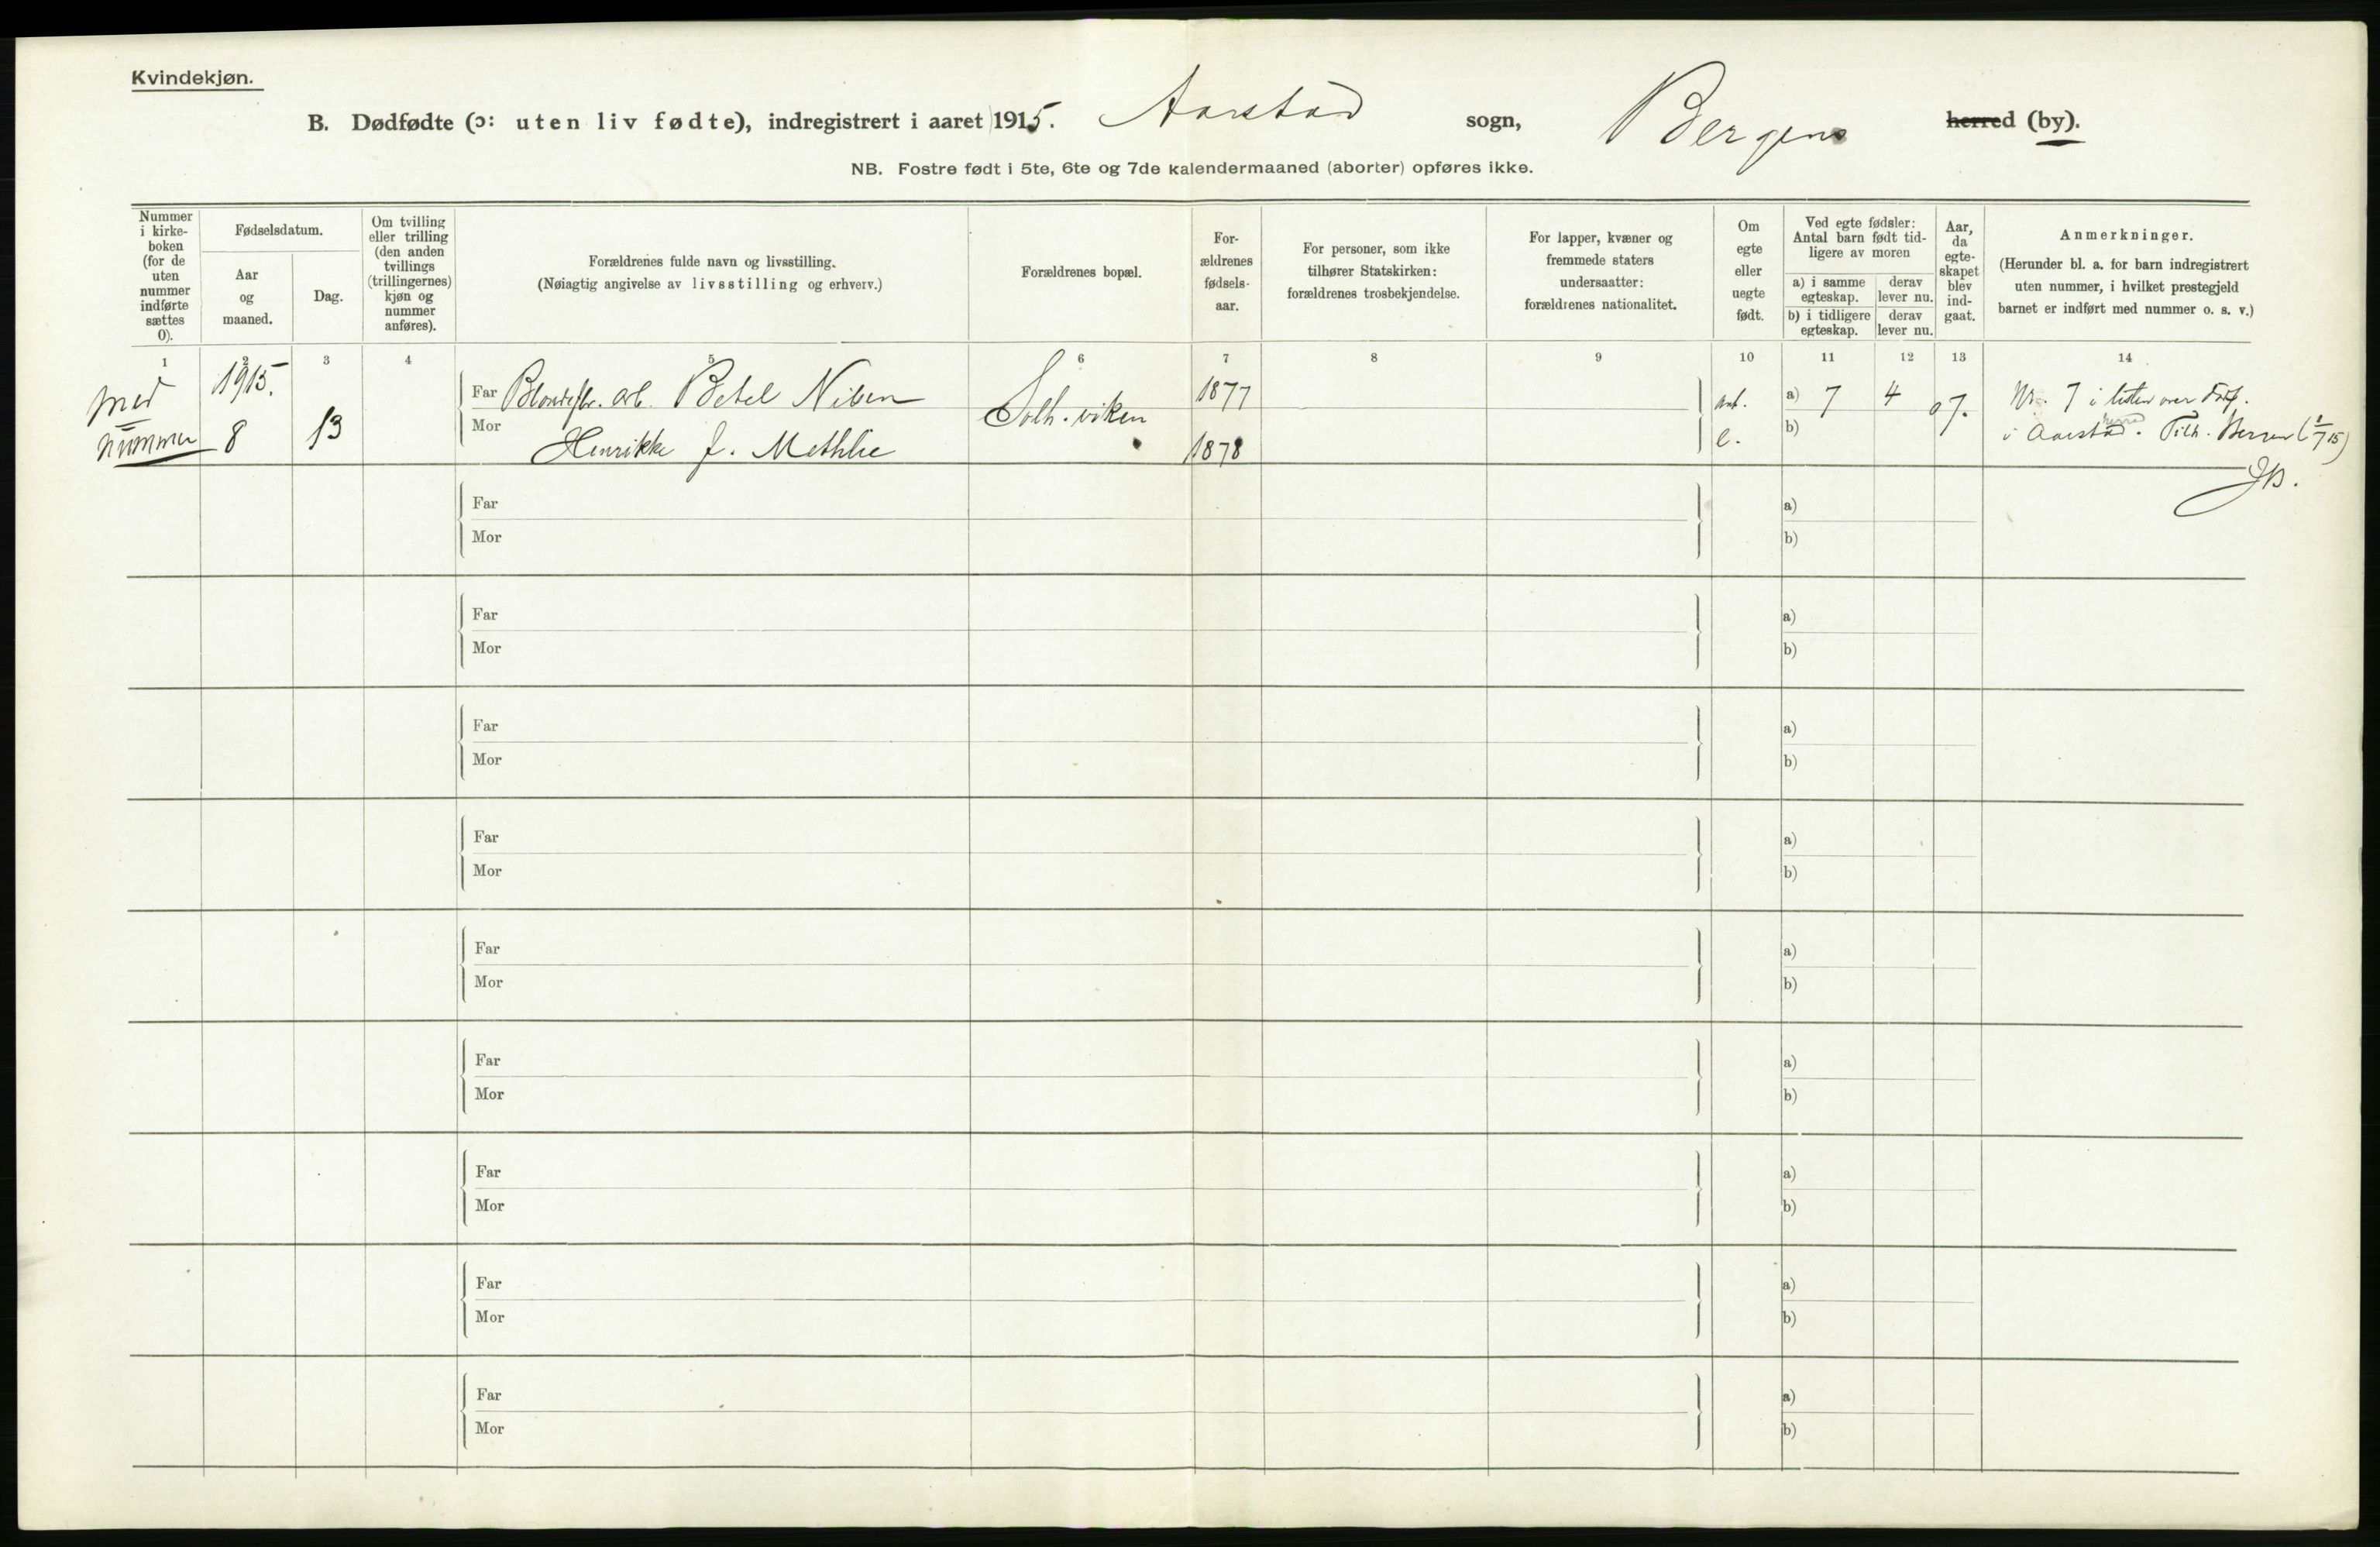 Kvindekjøn.
B. Dødfødte (ɔ: uten liv fødte), indregistrert i aaret 1915. Aarstad sogn, Bergens herred (by).
NB. Fostre født i 5te, 6te og 7de kalendermaaned (aborter) opføres ikke.
Nummer i kirke-boken (for de uten nummer indførte sættes 0).
Fødselsdatum.
Aar og maaned.
Dag.
Om tvilling eller trilling (den anden tvillings (trillingernes) kjøn og nummer anføres).
Forældrenes fulde navn og livsstilling.
(Nøiagtig angivelse av livsstilling og erhverv.)
Forældrenes bopæl.
For-ældrenes fødsels-aar.
For personer, som ikke tilhører Statskirken: forældrenes trosbekjendelse.
For lapper, kvæner og fremmede staters undersaatter: forældrenes nationalitet.
Om egte eller uegte født.
Ved egte fødsler: Antal barn født tid-ligere av moren
a) i samme egteskap.
derav lever nu.
b) i tidligere egteskap.
derav lever nu.
Aar, da egte-skapet blev ind-gaat.
Anmerkninger.
(Herunder bl. a. for barn indregistrert uten nummer, i hvilket prestegjeld barnet er indført med nummer o. s. v.)
1 2 3 4 5 6 7 8 9 10 11 12 13 14
med nummer
1915.
8 13
Far arb. Betel Nilsen
Mor Henrikke f. Methlie
Solh. viken
1877
1878
e.
a) 7 4 07.
b)
Nr. 7 i listen over
i Aarstad herred. Tilh. Bergen (1/7 15)
Far
Mor
a)
b)
Far
Mor
a)
b)
Far
Mor
a)
b)
Far
Mor
a)
b)
Far
Mor
a)
b)
Far
Mor
a)
b)
Far
Mor
a)
b)
Far
Mor
a)
b)
Far
Mor
a)
b)